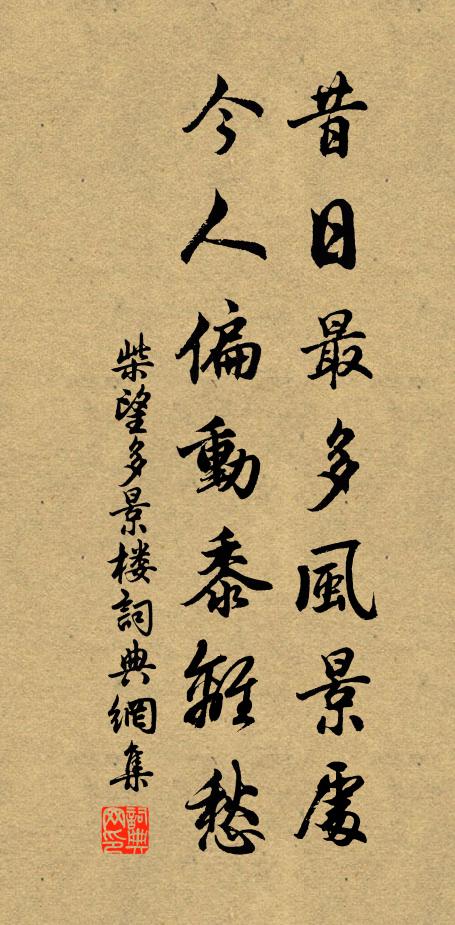 昔日最多風景處
今人偏動黍離愁
柴望多景楼詞典網集
詞典网印